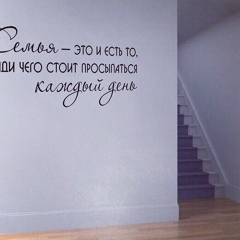 Семья – ЭТО И ЕСТЬ ТО,
ЧЕГО СТОИТ ПРОСЫПАТЬСЯ
каждый день